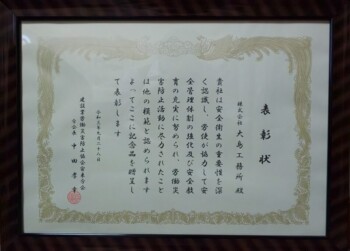 表彰状
株式会社 大島工務所 殿
貴社は安全衛生の重要性を深
く認識し、労使が協力して安
全管理体制の強化及び安全教
育の充実に努められ、労働災
害防止活動に尽力されたこと
は他の模範と認められます
よってここに記念品を贈呈し
て表彰します
建設業労働災害防止協会